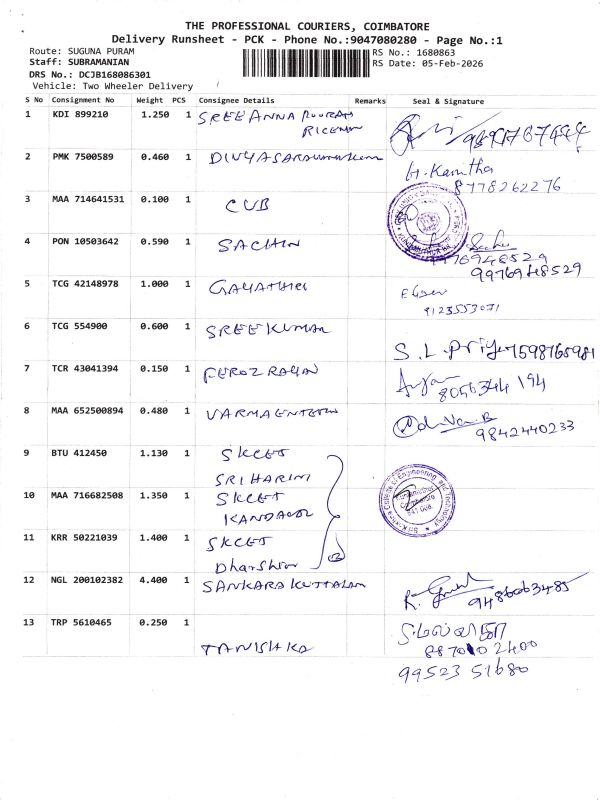 THE PROFESSIONAL COURIERS, COIMBATORE
Delivery Runsheet - PCK - Phone No.:9047080280 - Page No.:1
Route: SUGUNA PURAM RS No.: 1680863
Staff: SUBRAMANIAN RS Date: 05-Feb-2026
DRS No.: DCJB168086301
Vehicle: Two Wheeler Delivery
S No Consignment No Weight PCS Consignee Details Remarks Seal & Signature
1 KDI 899210 1.250 1 SREE ANNA POORANI
2 PMK 7500589 0.460 1 H. Kavitha
8778262276
3 MAA 714641531 0.100 1 CUB
4 PON 10503642 0.590 1 SACHIN
9976948529
5 TCG 42148978 1.000 1 GAYATHIRI
6 TCG 554900 0.600 1 SREE KUMAR S. L. Priya 7598765981
7 TCR 43041394 0.150 1 FEROZ RAYAN 8056344194
8 MAA 652500894 0.480 1 VARMA ENTER
9842440233
9 BTU 412450 1.130 1 SKCET
SRI HARINI
10 MAA 716682508 1.350 1 SKCET
Sri Krishna College of Engineering and Technology
Coimbatore
641 008
11 KRR 50221039 1.400 1 SKCET
Dharshini
12 NGL 200102382 4.400 1 SANKARA KUTTALAM
9486063485
13 TRP 5610465 0.250 1
TANISHKA 8870102400
99523 51680